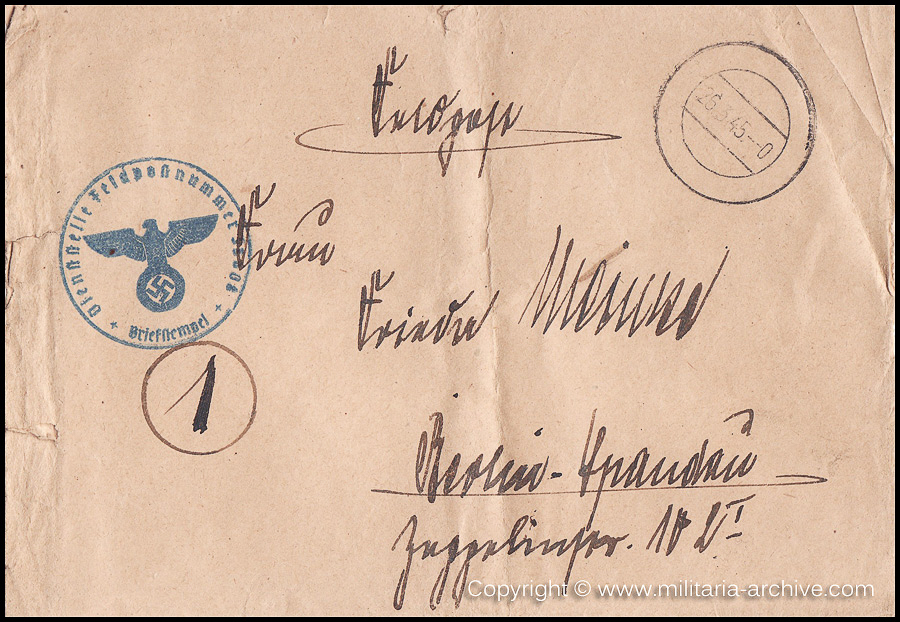 Feldpost
26.3.45.--0
Dienststelle Feldpostnummer
+ Briefstempel +
Frau
Frieda Meinke
1
Berlin-Spandau
Zeppelinstr.
Copyright © www.militaria-archive.com